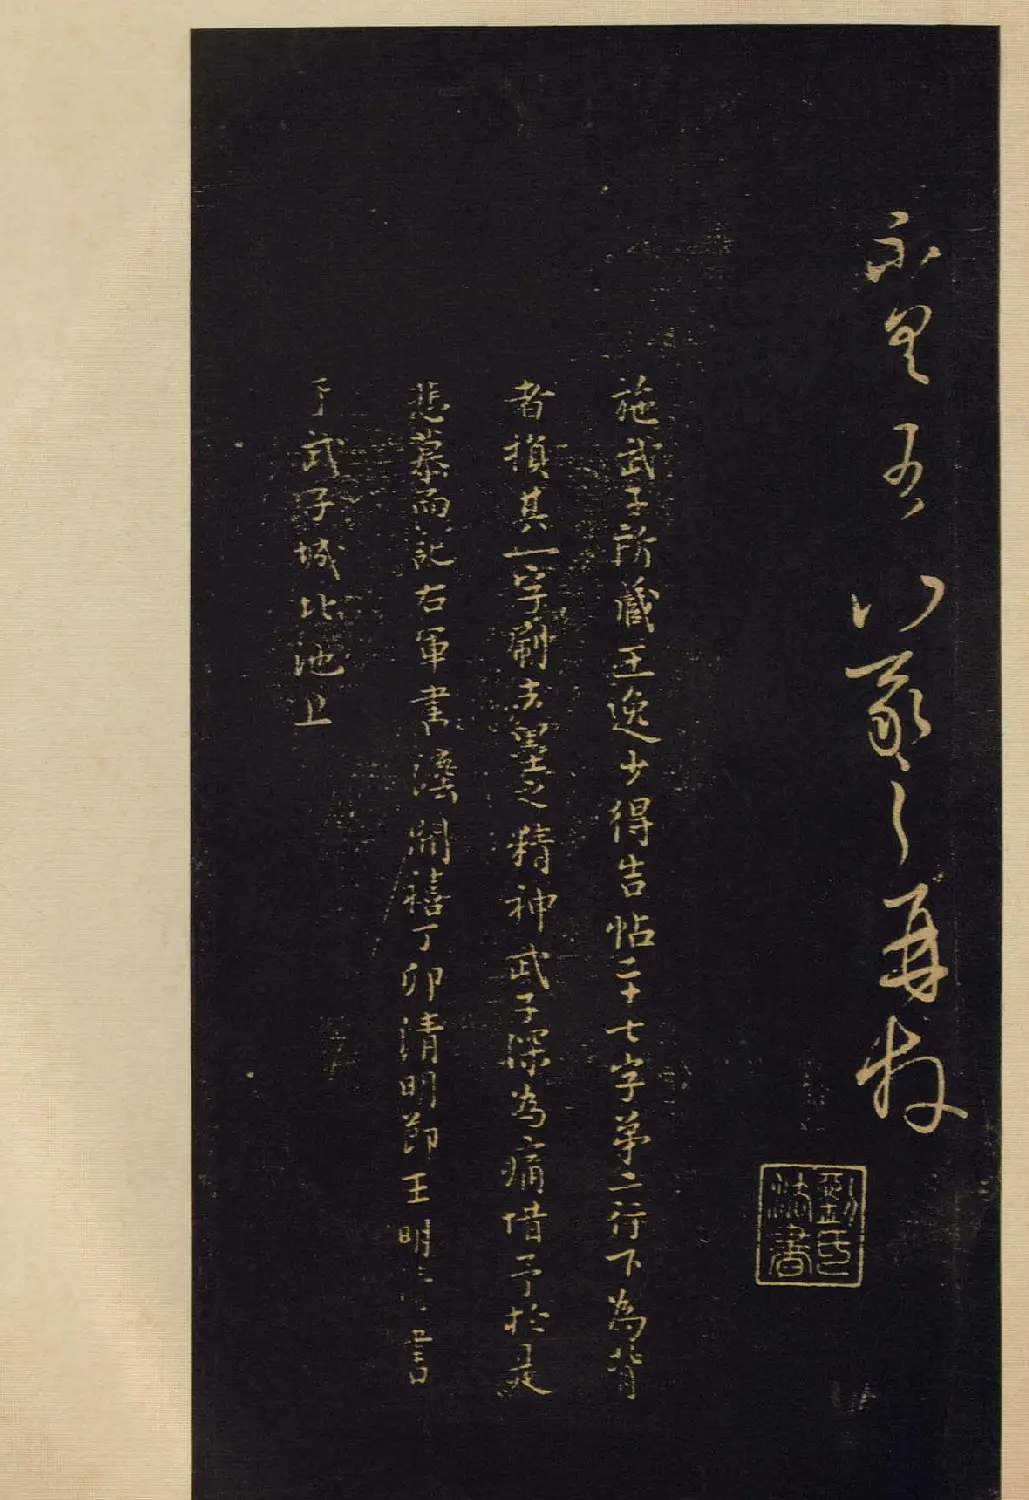 羲之再拜
劉氏
法書
施武子所藏王逸少得告帖二十七字第二行下為背
者損其一字刷去墨之精神武子深為痛惜予於是
悲慕而記右軍書法開禧丁卯清明節王明清書
于武子城北池上